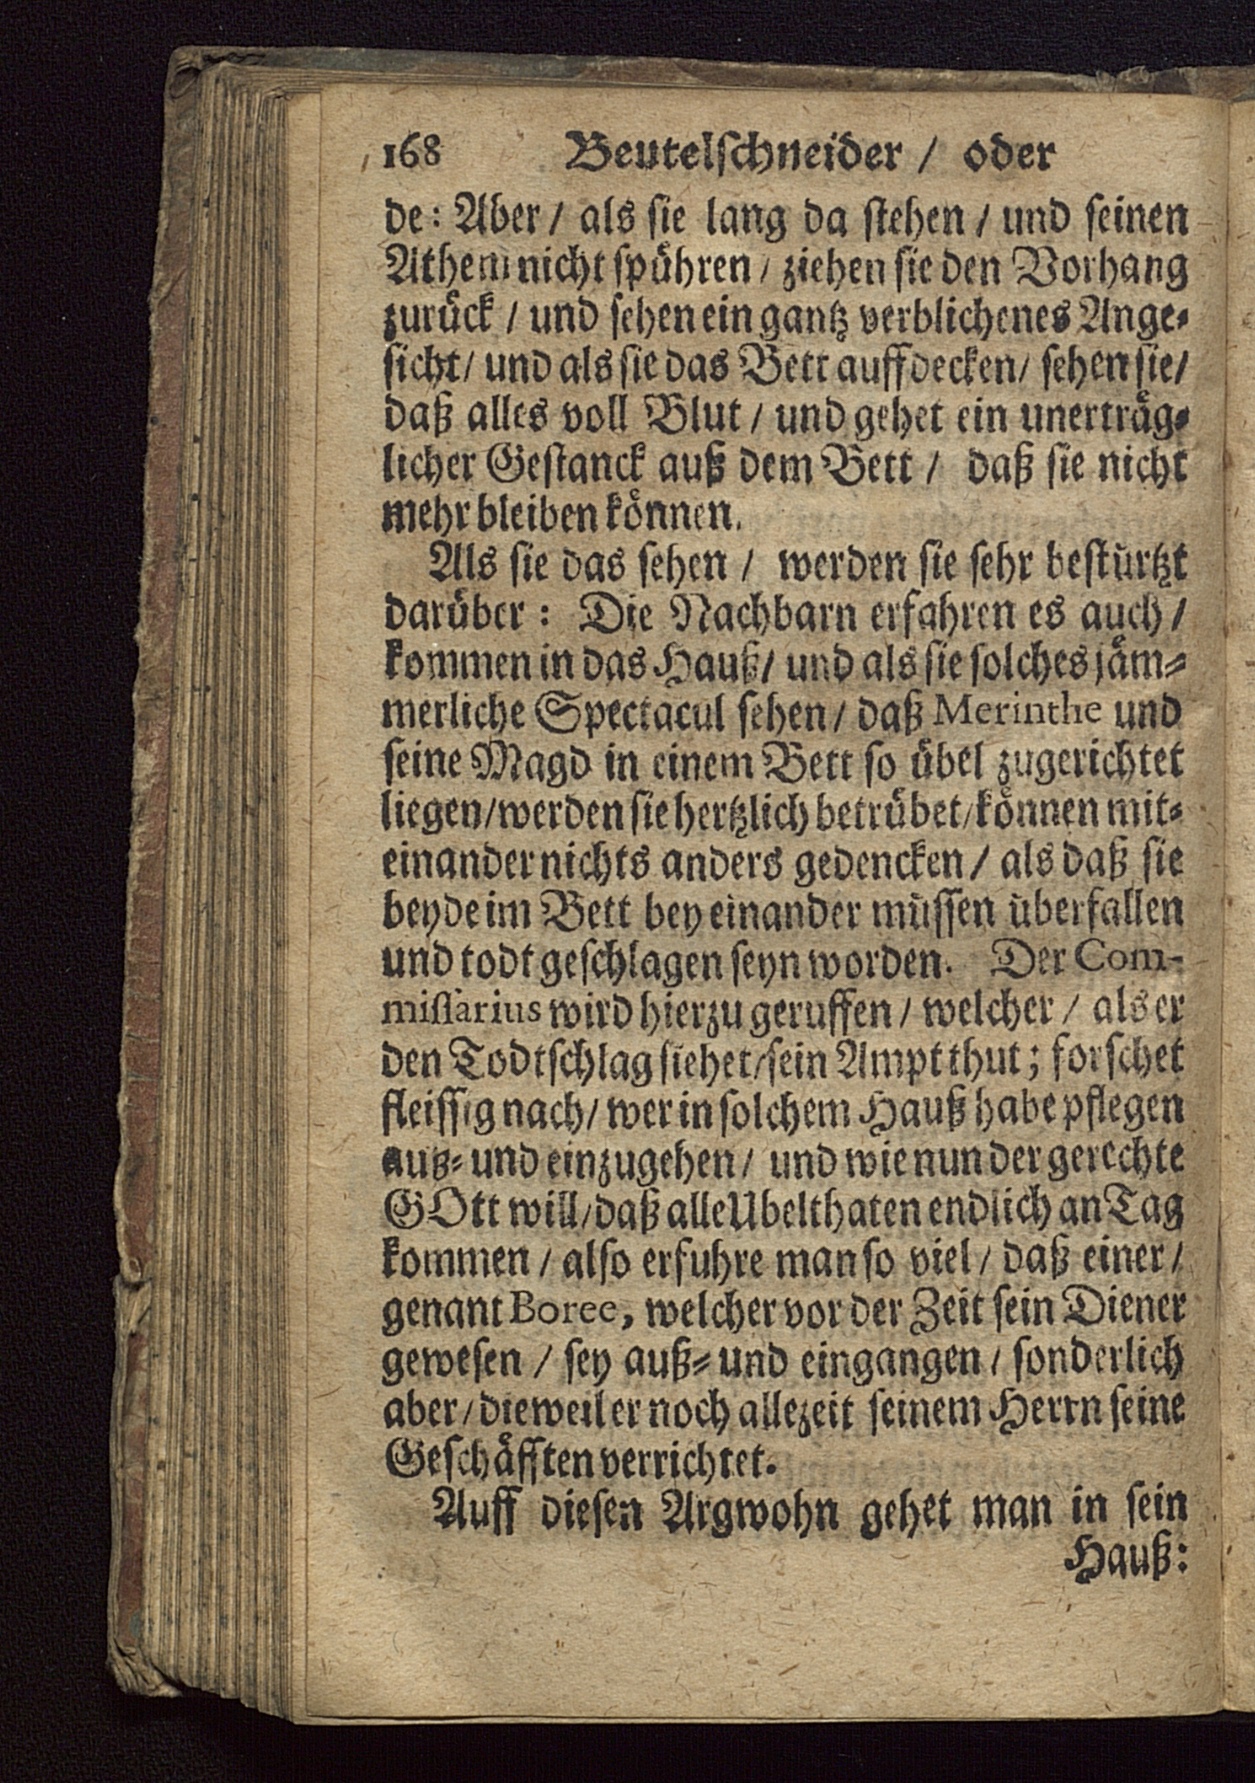 168 Beutelschneider / oder
de: Aber / als sie lang da stehen / und seinen
Athem nicht spühren / ziehen sie den Vorhang
zurück / und sehen ein gantz verblichenes Ange-
sicht / und als sie das Bett auffdecken / sehen sie /
daß alles voll Blut / und gehet ein unerträg-
licher Gestanck auß dem Bett / daß sie nicht
mehr bleiben können.
Als sie das sehen / werden sie sehr bestürtzt
darüber: Die Nachbarn erfahren es auch /
kommen in das Hauß / und als sie solches jäm-
merliche Spectacul sehen / daß Merinthe und
seine Magd in einem Bett so übel zugerichtet
liegen / werden sie hertzlich betrübet / können mit-
einander nichts anders gedencken / als daß sie
beyde im Bett bey einander müssen überfallen
und todt geschlagen seyn worden. Der Com-
missarius wird hierzu geruffen / welcher / als er
den Todtschlag siehet / sein Ampt thut; forschet
fleissig nach / wer in solchem Hauß habe pflegen
auß- und einzugehen / und wie nun der gerechte
GOtt will / daß alle Ubelthaten endlich an Tag
kommen / also erfuhre man so viel / daß einer /
genant Boree, welcher vor der Zeit sein Diener
gewesen / sey auß- und eingangen / sonderlich
aber / dieweil er noch allezeit seinem Herrn seine
Geschäfften verrichtet.
Auff diesen Argwohn gehet man in sein
Hauß: